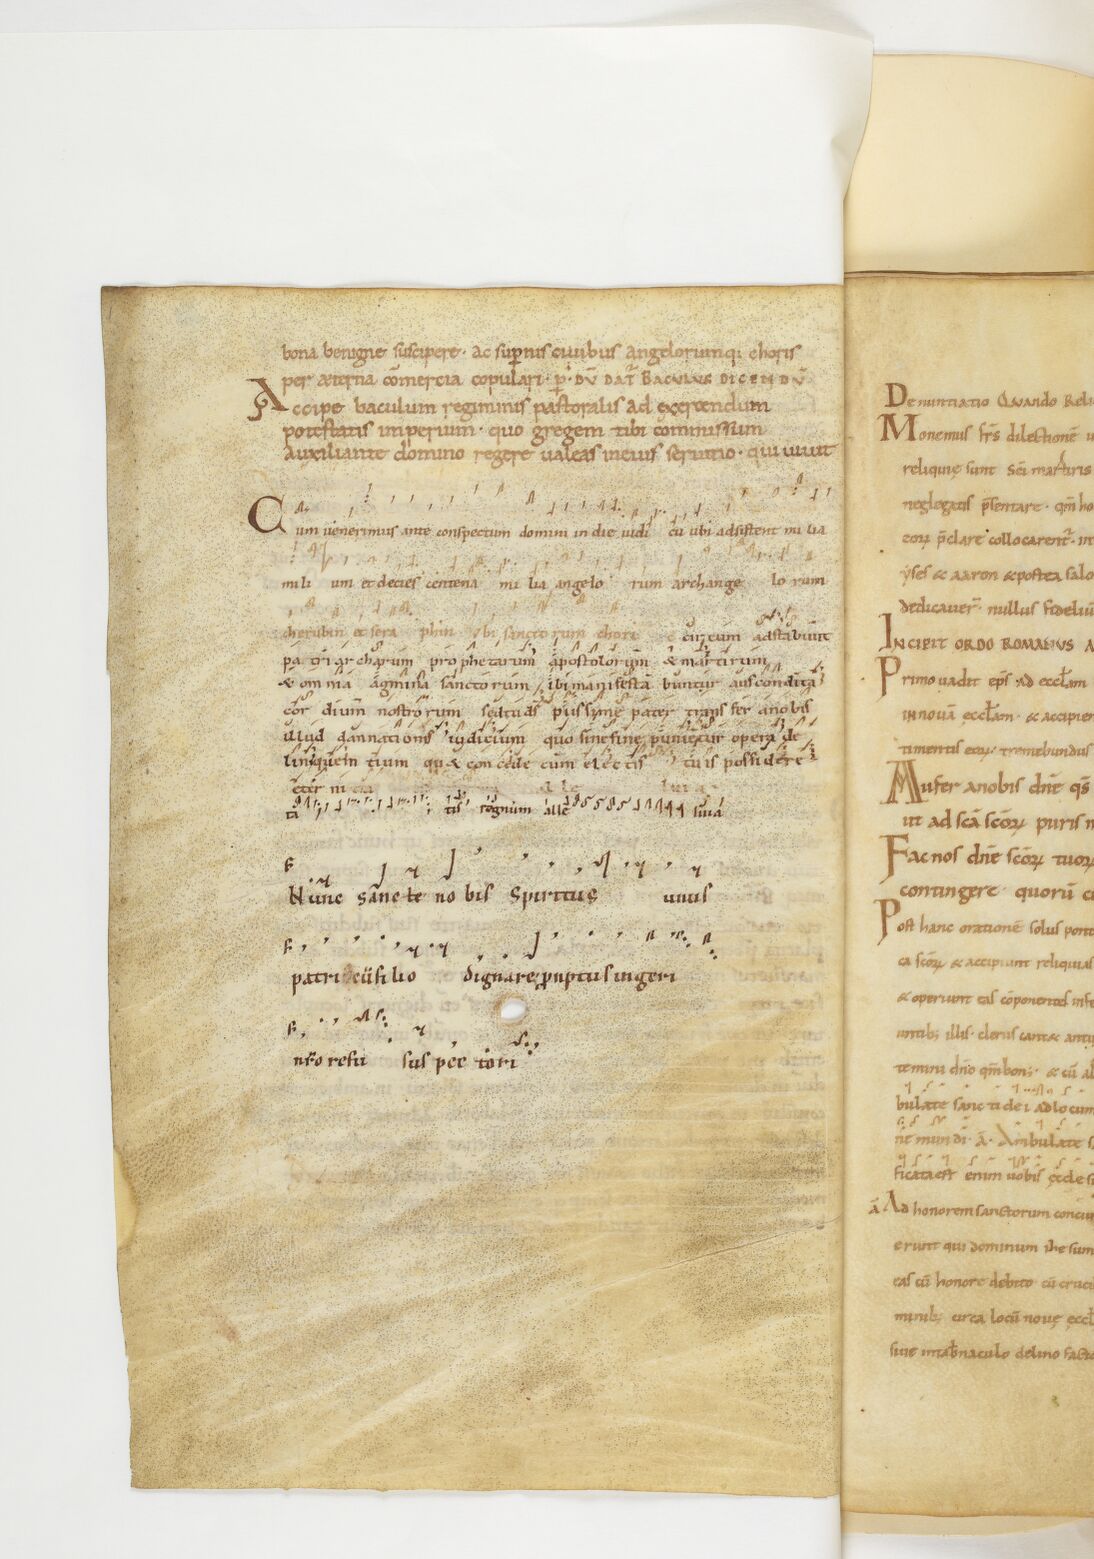 bona benigne suscipere · ac suꝑnis ciuibus angelorumq; choris
per aeterna cōmercia copulari · DŪ DAT᷑ BACULUS DICENDŪ
Accipe baculum regiminis pastoralis ad exercendum
potestatis imperium · quo gregem tibi commissum
auxiliante domino regere ualeas ineius seruitio · qui uiuit
Cum uenerimus ante conspectum domini in die iudi cii ubi adsistent mi lia
mili um et decies centena mi lia angelo rum archange lo rum
cherubin et sera phin ubi sanctorum chori adstabunt
pa tri archarum prophetarum apostolorum & martirum
& om nia agmina sanctorum ibi manifesta buntur
cor dium nostrorum piissyme pater trans fer anobis
illud dānationis iudicium quo sine fine opera de
linquen tium con cede cum electis tuis possidere
regnum alle
Nunc sancte no bis Spiritus unus
patri cū filio dignare ꝓmptus ingeri
nr̄o refu sus pec tori
Denuntiatio Quando Reli
Monemus fr̄s dilectionē u
reliquię sunt sc̄i martiris
neglegatis p̄sentare · qm̄ ho
eoꝝ p̄clare collocarent᷑ · m
yses & aaron & postea salo
dedicauer̄ nullus fideliū
INCIPIT ORDO ROMANUS A
Primo uadit ep̄s ad eccl̄am
in nouā eccl̄am · & accipien
timentis eoꝝ · tremebundus
Aufer anobis dn̄e qs̄
ut ad sc̄a sc̄oꝝ puris m
Fac nos dn̄e sc̄oꝝ tuoꝝ
contingere quorū c
Post hanc orationē solus ponti
ca sc̄oꝝ & accipiunt reliquias
& operiunt eas cōponentes
untib; illis · clerus cantat anti
temini dn̄o qm̄ bon; · & cū al
bulate sanc ti de i ad lo cum
nē mun di · ā · Ambulate s
ficata est enim uobis ęccle si
ā Ad honorem sanctorum concur
erunt qui dominum ihesum
eas cū honore debito cū cruci
minib; circa locū noue eccl̄
siue intab̄naculo delino facto